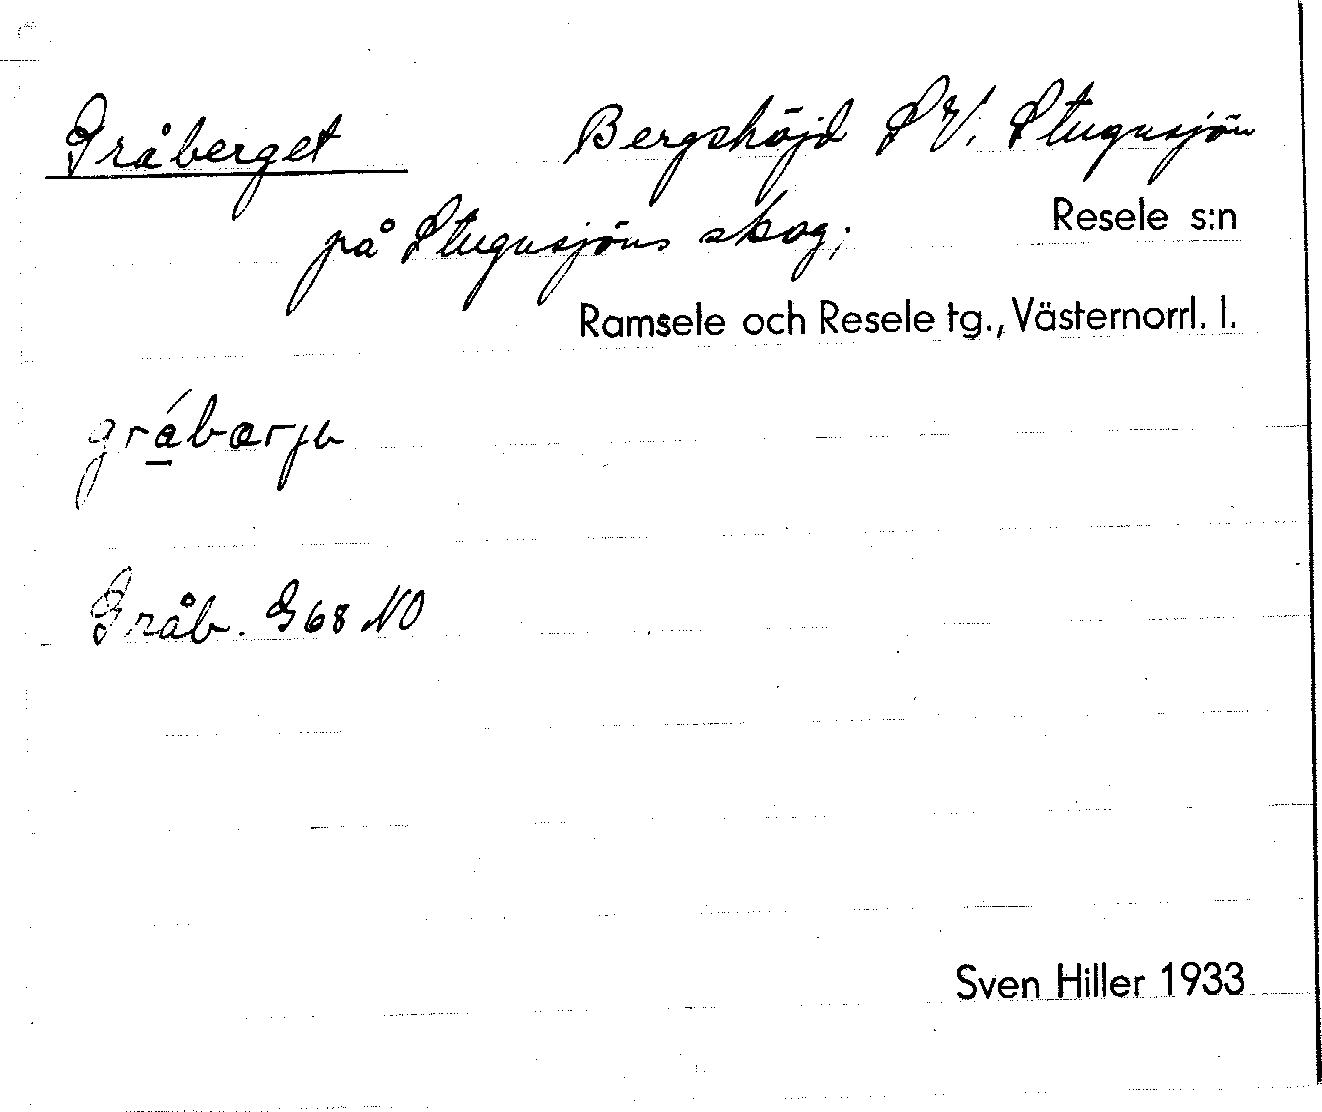 Gråberget Bergshöjd SV. Stugusjön
på Stugusjöns skog; Resele s:n
Ramsele och Resele tg., Västernorrl. l.
Gråb. G68 NO
Sven Hiller 1933